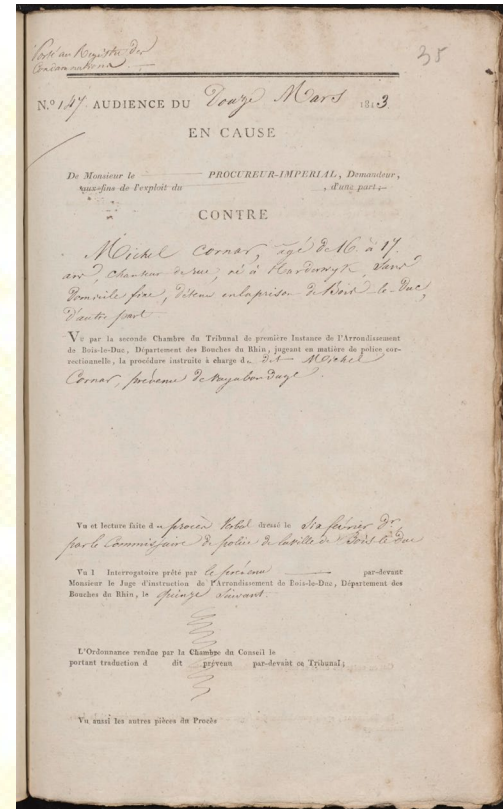 Porté au Registre des
Condamnations
35
N.º 147 AUDIENCE DU Douze Mars 1813.
EN CAUSE
De Monsieur le PROCUREUR-IMPERIAL, Demandeur,
aux fins de l'exploit du , d'une part;
CONTRE
Michel Cornar, agé de 16 à 17
ans, chanteur de rue, né à Harderwyk, Sans
domicile fixe, détenu en la prison de Bois-le-Duc,
d'autre part
Vu par la seconde Chambre du Tribunal de première Instance de l'Arrondissement
de Bois-le-Duc, Département des Bouches du Rhin, jugeant en matière de police cor-
rectionnelle, la procédure instruite à charge du dit Michel
Cornar, prévenu de Vagabondage
Vu et lecture faite du procès Verbal dressé le Six février dr
par le Commissaire de police de la ville de Bois-le-Duc
Vu l Interrogatoire prêté par le prévenu par-devant
Monsieur le Juge d'instruction de l'Arrondissement de Bois-le-Duc, Département des
Bouches du Rhin, le quinze Suivant
L'Ordonnance rendue par la Chambre du Conseil le
portant traduction d dit prévenu par-devant ce Tribunal;
Vu aussi les autres pièces du Procès